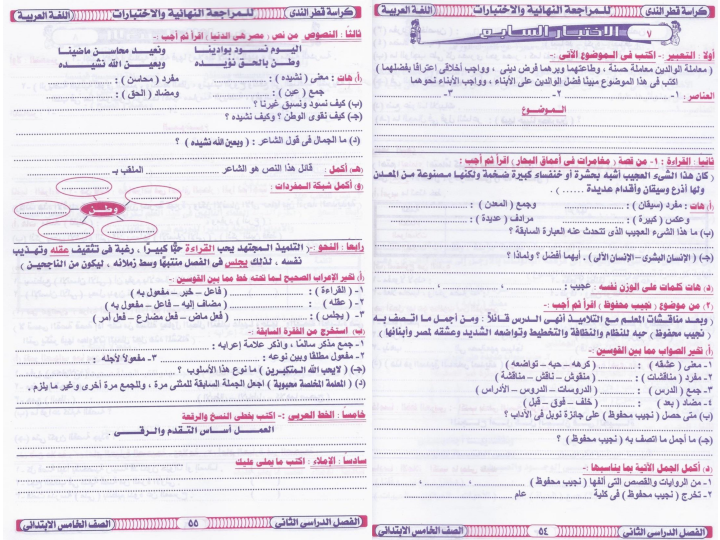 كراسة قطر الندى
للمراجعة النهائية والاختبارات
اللغة العربية
٧
الاختبار السابع
أولًا : التعبير :- اكتب فى الموضوع الآتى :-
( معاملة الوالدين معاملة حسنة ، وطاعتهما وبرهما فرض دينى ، وواجب أخلاقى اعترافًا بفضلهما )
اكتب فى هذا الموضوع مبينًا فضل الوالدين على الأبناء ، وواجب الأبناء نحوهما
العناصر : ١- ٢- ٣-
الموضوع
ثانيًا : القراءة : ١- من قصة ( مغامرات فى أعماق البحار ) اقرأ ثم أجب :
( كان هذا الشىء العجيب أشبه بحشرة أو خنفساء كبيرة ضخمة ولكنها مصنوعة من المعدن
ولها أذرع وسيقان وأقدام عديدة ...... ) .
(أ) هات : مفرد ( سيقان ) : وجمع ( المعدن ) :
وعكس ( كبيرة ) : مرادف ( عديدة ) :
(ب) ما هذا الشىء العجيب الذى تتحدث عنه العبارة السابقة ؟
(جـ) ( الإنسان البشرى – الإنسان الآلى ) . أيهما أفضل ؟ ولماذا ؟
(د) هات كلمات على الوزن نفسه : عجيب : ، ،
(٢) من موضوع ( نجيب محفوظ ) اقرأ ثم أجب :-
( وبعد مناقشات المعلم مع التلاميذ أنهى الدرس قائلًا : ومن أجمل ما اتصف به
( نجيب محفوظ ) حبه للنظام والنظافة والتخطيط وتواضعه الشديد وعشقه لمصر وأبنائها )
(أ) تخير الصواب مما بين القوسين :-
١- معنى ( عشقه ) : ( كرهه – حبه – تواضعه )
٢- مفرد ( مناقشات ) : ( منقوش – ناقش – مناقشة )
٣- جمع ( الدرس ) : ( الدروسات – الدروس – الأدراس )
٤- مضاد ( بعد ) : ( خلف – فوق – قبل )
(ب) متى حصل ( نجيب محفوظ ) على جائزة نوبل فى الآداب ؟
(جـ) ما أجمل ما اتصف به ( نجيب محفوظ ) ؟
(د) أكمل الجمل الآتية بما يناسبها :-
١- من الروايات والقصص التى ألفها ( نجيب محفوظ ) ، ،
٢- تخرج ( نجيب محفوظ ) فى كلية عام
الفصل الدراسى الثانى
٥٤
الصف الخامس الابتدائى
كراسة قطر الندى
للمراجعة النهائية والاختبارات
اللغة العربية
ثالثًا : النصوص من نص : مصر هى الدنيا : اقرأ ثم أجب :-
اليوم نسود بوادينا ونعيد محاسن ماضينا
وطن بالحق نؤيده وبعين الله نشيده
(أ) هات : معنى ( نشيده ) : مفرد ( محاسن ) :
جمع ( عين ) : ومضاد ( الحق ) :
(ب) كيف نسود ونسبق غيرنا ؟
(جـ) كيف نقوى الوطن ؟ وكيف نشيده ؟
(د) ما الجمال فى قول الشاعر : ( وبعين الله نشيده ) ؟
(هـ) أكمل : قائل هذا النص هو الشاعر الملقب بـ
(و) أكمل شبكة المفردات :
وطن
رابعًا : النحو :- ( التلميذ المجتهد يحب القراءة حبًّا كبيرًا ، رغبة فى تثقيف عقله وتهذيب
نفسه ، لذلك يجلس فى الفصل منتبهًا وسط زملائه ، ليكون من الناجحين )
(أ) تخير الإعراب الصحيح لما تحته خط مما بين القوسين :-
١- ( القراءة ) : ( فاعل – خبر – مفعول به )
٢- ( عقله ) : ( مضاف إليه – فاعل – مفعول به )
٣- ( يجلس ) : ( فعل ماض – فعل مضارع – فعل أمر )
(ب) استخرج من الفقرة السابقة :-
١- جمع مذكر سالمًا ، واذكر علامة إعرابه :
٢- مفعول مطلقًا وبين نوعه : ٣- مفعولًا لأجله :
(جـ) ( لا يحب الله المتكبرين ) ما نوع هذا الأسلوب ؟
(د) ( المعلمة المخلصة محبوبة ) اجعل الجملة السابقة للمثنى مرة ، وللجمع مرة أخرى وغير ما يلزم .
خامسًا : الخط العربى :- اكتب بخطى النسخ والرقعة
العمــل أساس التقدم والرقــى .
سادسًا : الإملاء : اكتب ما يملى عليك
الفصل الدراسى الثانى
٥٥
الصف الخامس الابتدائى